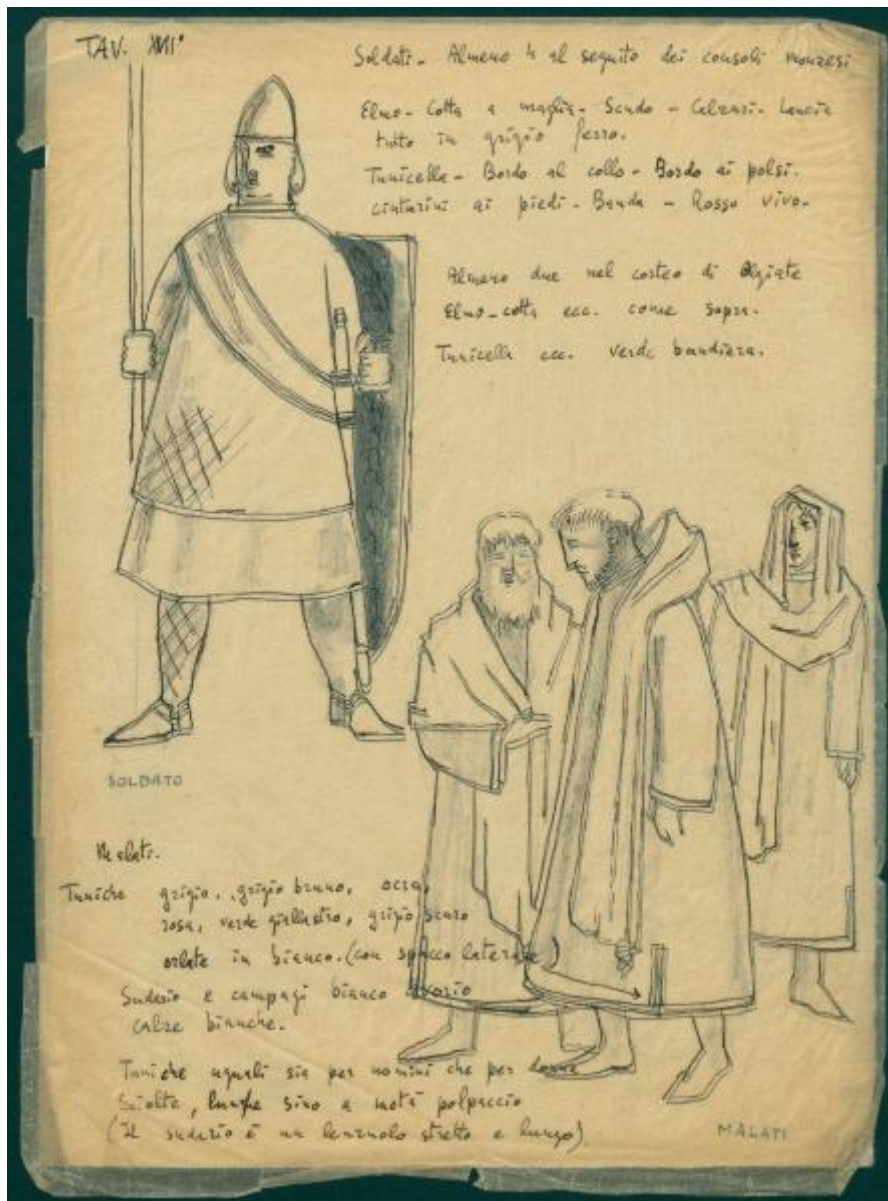 TAV. XVII°
Soldati - Almeno 4 al seguito dei consoli monzesi
Elmo - Cotta a maglia - Scudo - Calzari - Lancia
tutto in grigio ferro.
Tunicella - Bordo al collo - Bordo ai polsi.
cinturini ai piedi - Banda - Rosso vivo.
Almeno due nel corteo di Olgiate
Elmo - cotta ecc. come sopra.
Tunicella ecc. verde bandiera.
SOLDATO
Malati.
Tuniche grigio, grigio bruno, ocra,
rosa, verde giallastro, grigio scuro
orlate in bianco. (con spacco laterale)
Sudario e campagi bianco avorio
calze bianche.
Tuniche uguali sia per uomini che per donne
Sciolte, lunghe sino a metà polpaccio
(il sudario è un lenzuolo stretto e lungo)
MALATI